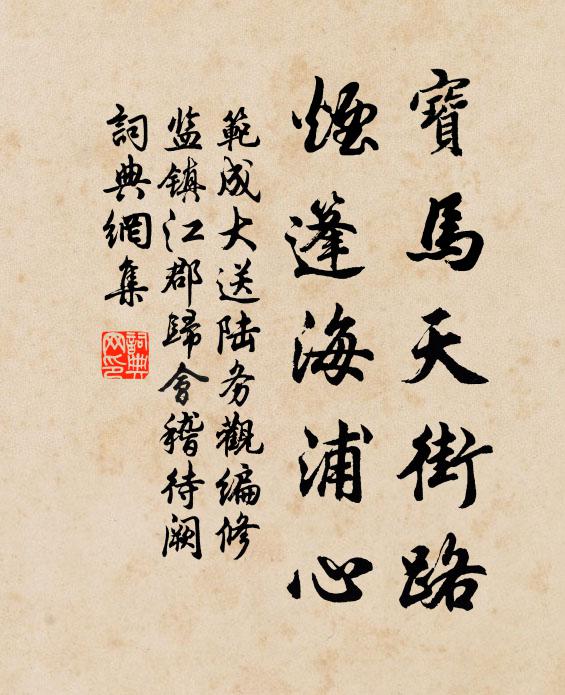 寶馬天街路
煙篷海浦心
範成大送陆务觀編修
监镇江郡歸會稽待阙
詞典網集
詞典网印